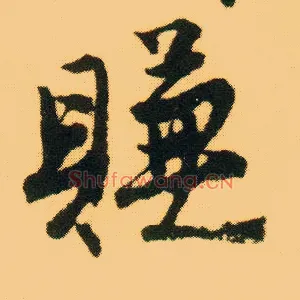 賺
Shufawang.CN